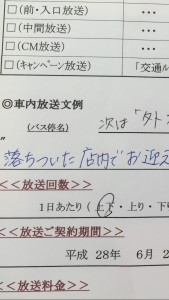 □(前・入口放送) ・・・
□(中間放送) ・・・
□(CM放送) ・・・
□(キャンペーン放送) 「交通
◎車内放送文例
(バス停名) 次は「タト
落ちついた店内でお迎え
<<放送回数>>
1日あたり(上下・上り・下り
<<放送ご契約期間>>
平成 28年 6月 2
<<放送料金>>